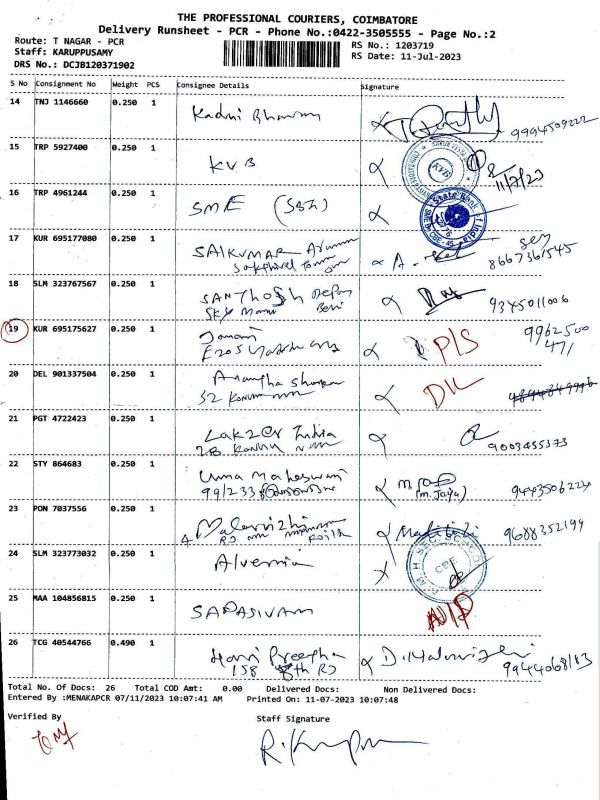 THE PROFESSIONAL COURIERS, COIMBATORE
Delivery Runsheet - PCR - Phone No.:0422-3505555 - Page No.:2
Route: T NAGAR - PCR
Staff: KARUPPUSAMY
DRS No.: DCJB120371902
RS No.: 1203719
RS Date: 11-Jul-2023
S No Consignment No Weight PCS Consignee Details Signature
14 TNJ 1146660 0.250 1
9994509222
15 TRP 5927400 0.250 1 KVB
KVB
11/7/23
16 TRP 4961244 0.250 1 SME (SBI)
State Bank of India
17 KUR 695177080 0.250 1 SAIKUMAR
8667361545
18 SLM 323767567 0.250 1 SANTHOSH
SKY
9345011006
19 KUR 695175627 0.250 1
E205
PLS
9962500
471
20 DEL 901337504 0.250 1 Anantha
32
DIL
21 PGT 4722423 0.250 1 India
2B
9003455373
22 STY 864683 0.250 1 Uma Maheswari
99/233
(m.Jaya)
9443506224
23 PON 7037556 0.250 1 Malarvizhi
4
9688352199
24 SLM 323773032 0.250 1 Alvernia
CBE
25 MAA 104856815 0.250 1 SAPASIVAM
26 TCG 40544766 0.490 1 Hari Preepha
158 8th RD
9944068183
Total No. Of Docs: 26 Total COD Amt: 0.00 Delivered Docs: Non Delivered Docs:
Entered By :MENAKAPCR 07/11/2023 10:07:41 AM Printed On: 11-07-2023 10:07:48
Verified By Staff Signature